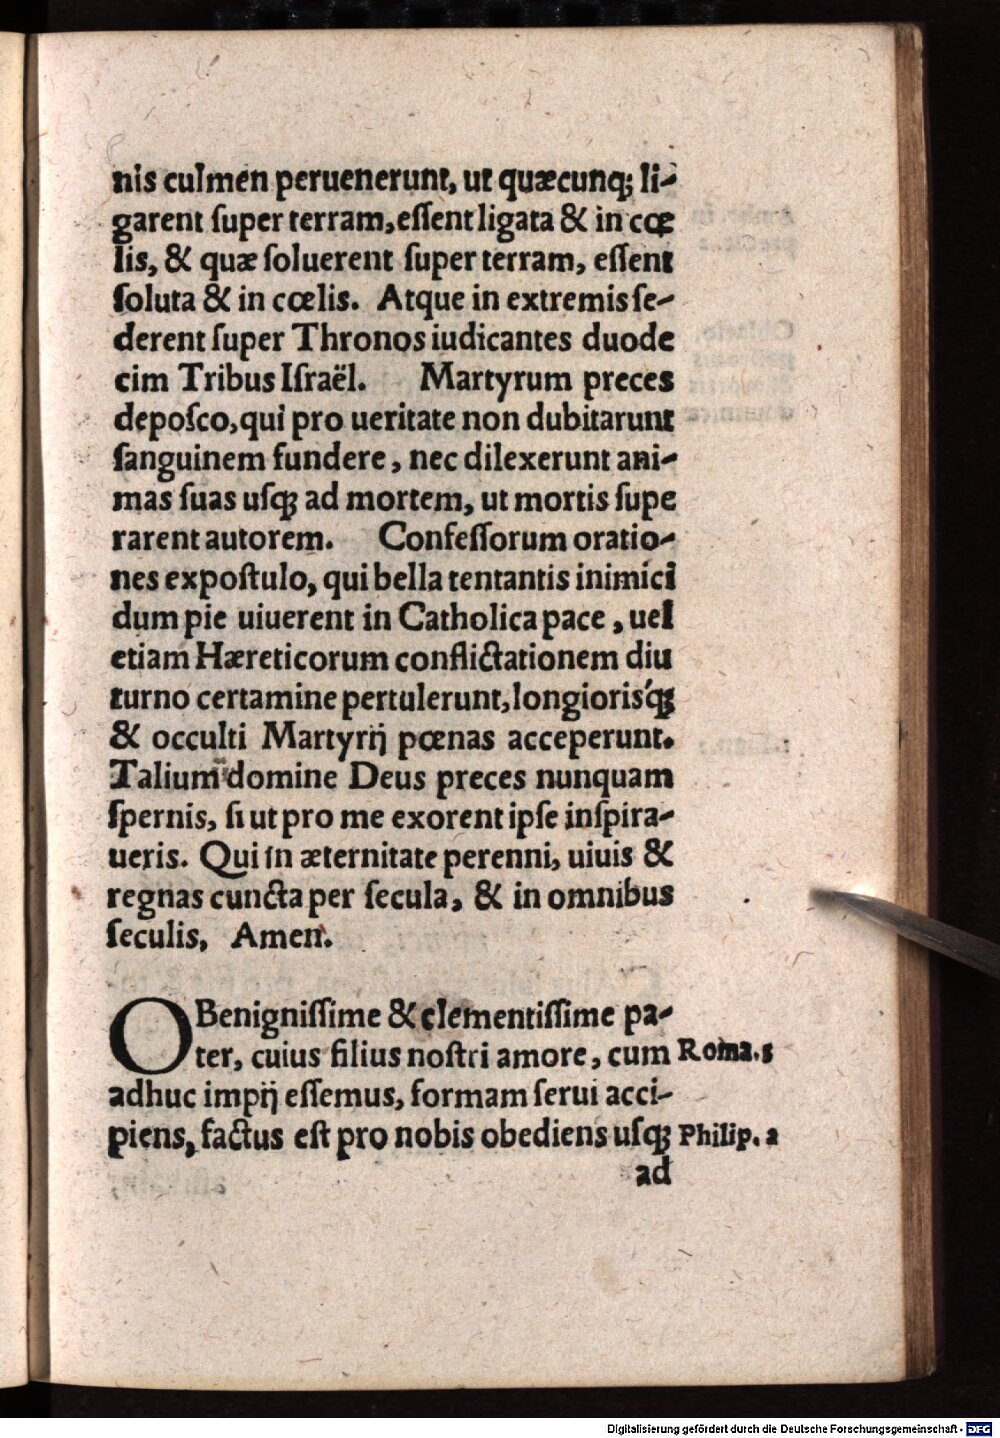 nis culmen peruenerunt, ut quæcunq; li-
garent ſuper terram, eſſent ligata & in cœ
lis, & quæ ſoluerent ſuper terram, eſſent
ſoluta & in cœlis. Atque in extremis ſe-
derent ſuper Thronos iudicantes duode
cim Tribus Iſraël. Martyrum preces
depoſco, qui pro ueritate non dubitarunt
ſanguinem fundere, nec dilexerunt ani-
mas ſuas uſq; ad mortem, ut mortis ſupe
rarent autorem. Confeſſorum oratio-
nes expoſtulo, qui bella tentantis inimici
dum pie uiuerent in Catholica pace, uel
etiam Hæreticorum conflictationem diu
turno certamine pertulerunt, longioris´q;
& occulti Martyrij pœnas acceperunt.
Talium domine Deus preces nunquam
ſpernis, ſi ut pro me exorent ipſe inſpira-
ueris. Qui in æternitate perenni, uiuis &
regnas cuncta per ſecula, & in omnibus
ſeculis, Amen.
O Benigniſſime & clementiſſime pa-
ter, cuius filius noſtri amore, cum Roma. 5
adhuc impij eſſemus, formam ſerui acci-
piens, factus eſt pro nobis obediens uſq; Philip. 2
ad
Digitalisierung gefördert durch die Deutsche Forschungsgemeinschaft - DFG